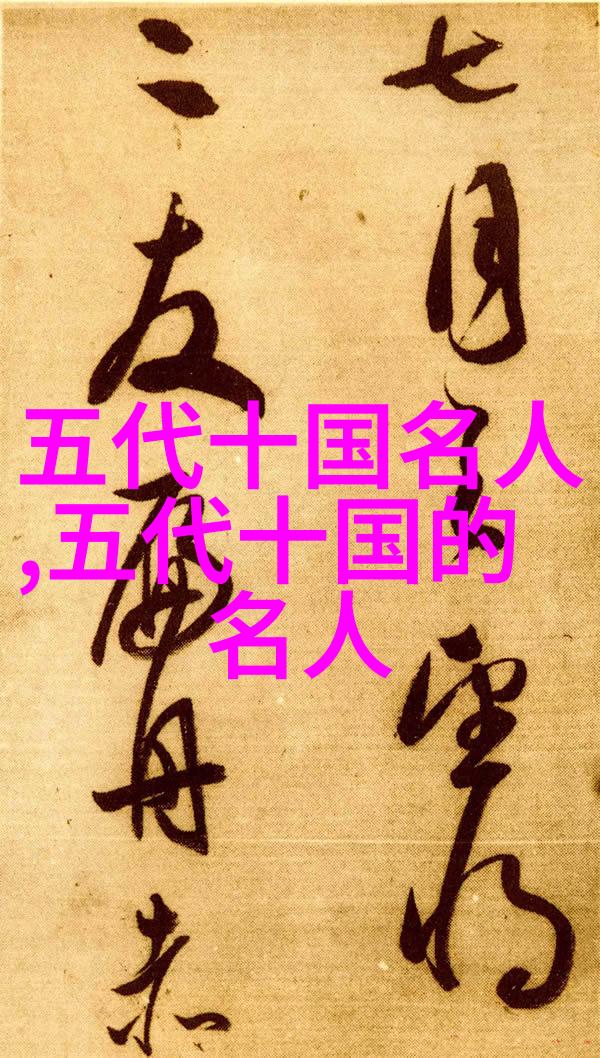 五代十国名人
,五代十国的
名人
七月望
二友舟赤